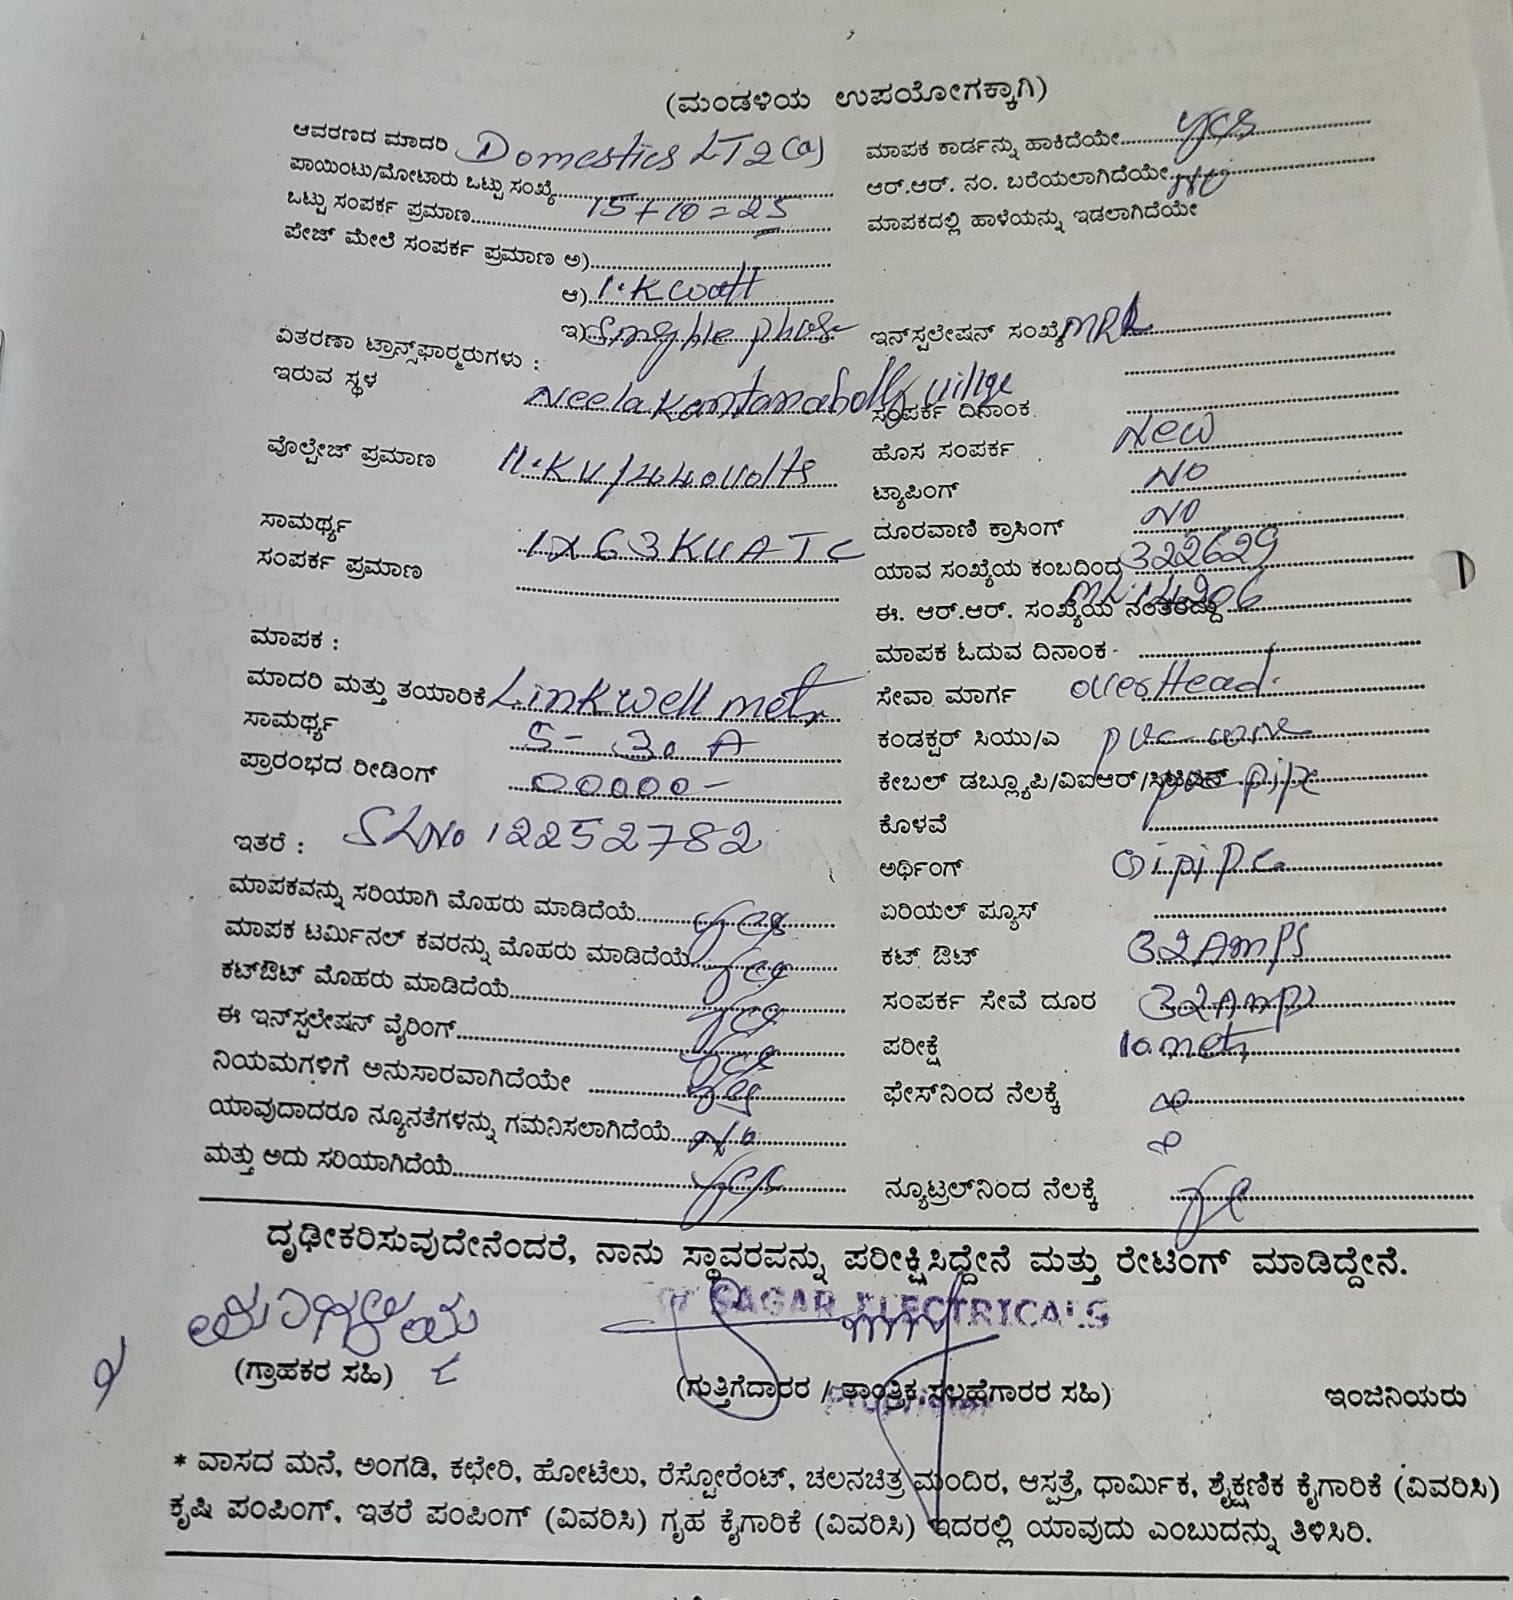 (ಮಂಡಳಿಯ ಉಪಯೋಗಕ್ಕಾಗಿ)
ಆವರಣದ ಮಾದರಿ Domestics LT2(a)
ಪಾಯಿಂಟು/ಮೋಟಾರು ಒಟ್ಟು ಸಂಖ್ಯೆ
ಒಟ್ಟು ಸಂಪರ್ಕ ಪ್ರಮಾಣ 15+10=25
ಪೇಜ್ ಮೇಲೆ ಸಂಪರ್ಕ ಪ್ರಮಾಣ ಅ)
ಆ) 1.K watt
ಇ) phase
ವಿತರಣಾ ಟ್ರಾನ್ಸ್‌ಫಾರ್ಮರುಗಳು :
ಇರುವ ಸ್ಥಳ Neelakantanabolly village
ವೋಲ್ಟೇಜ್ ಪ್ರಮಾಣ 11.KV/440volts
ಸಾಮರ್ಥ್ಯ 1X63KVA TC
ಸಂಪರ್ಕ ಪ್ರಮಾಣ
ಮಾಪಕ :
ಮಾದರಿ ಮತ್ತು ತಯಾರಿಕೆ Linkwell
ಸಾಮರ್ಥ್ಯ 5-30 A
ಪ್ರಾರಂಭದ ರೀಡಿಂಗ್ 00000-
ಇತರೆ : SLNo 12252782
ಮಾಪಕವನ್ನು ಸರಿಯಾಗಿ ಮೊಹರು ಮಾಡಿದೆಯೆ yes
ಮಾಪಕ ಟರ್ಮಿನಲ್ ಕವರನ್ನು ಮೊಹರು ಮಾಡಿದೆಯೆ yes
ಕಟ್‌ಔಟ್ ಮೊಹರು ಮಾಡಿದೆಯೆ yes
ಈ ಇನ್‌ಸ್ಟಲೇಷನ್ ವೈರಿಂಗ್ yes
ನಿಯಮಗಳಿಗೆ ಅನುಸಾರವಾಗಿದೆಯೇ yes
ಯಾವುದಾದರೂ ನ್ಯೂನತೆಗಳನ್ನು ಗಮನಿಸಲಾಗಿದೆಯೆ
ಮತ್ತು ಅದು ಸರಿಯಾಗಿದೆಯೆ yes
ಮಾಪಕ ಕಾರ್ಡನ್ನು ಹಾಕಿದೆಯೇ yes
ಆರ್.ಆರ್. ನಂ. ಬರೆಯಲಾಗಿದೆಯೇ
ಮಾಪಕದಲ್ಲಿ ಹಾಳೆಯನ್ನು ಇಡಲಾಗಿದೆಯೇ
ಇನ್‌ಸ್ಟಲೇಷನ್ ಸಂಖ್ಯೆ
ಸಂಪರ್ಕ ದಿನಾಂಕ
ಹೊಸ ಸಂಪರ್ಕ New
ಟ್ಯಾಪಿಂಗ್ NO
ದೂರವಾಣಿ ಕ್ರಾಸಿಂಗ್ NO
ಯಾವ ಸಂಖ್ಯೆಯ ಕಂಬದಿಂದ 322629
ಈ. ಆರ್.ಆರ್. ಸಂಖ್ಯೆಯ ನಂತರದ್ದು 14206
ಮಾಪಕ ಓದುವ ದಿನಾಂಕ
ಸೇವಾ ಮಾರ್ಗ overHead.
ಕಂಡಕ್ಟರ್ ಸಿಯು/ಎ pvc
ಕೇಬಲ್ ಡಬ್ಲ್ಯೂಪಿ/ವಿಐಆರ್/ pipe
ಕೊಳವೆ
ಅರ್ಥಿಂಗ್
ಏರಿಯಲ್ ಪ್ಯೂಸ್
ಕಟ್ ಔಟ್ 32Amps
ಸಂಪರ್ಕ ಸೇವೆ ದೂರ 32Amps
ಪರೀಕ್ಷೆ
ಫೇಸ್‌ನಿಂದ ನೆಲಕ್ಕೆ
ನ್ಯೂಟ್ರಲ್‌ನಿಂದ ನೆಲಕ್ಕೆ
ದೃಢೀಕರಿಸುವುದೇನೆಂದರೆ, ನಾನು ಸ್ಥಾವರವನ್ನು ಪರೀಕ್ಷಿಸಿದ್ದೇನೆ ಮತ್ತು ರೇಟಿಂಗ್ ಮಾಡಿದ್ದೇನೆ.
SAGAR ELECTRICALS
(ಗ್ರಾಹಕರ ಸಹಿ) (ಗುತ್ತಿಗೆದಾರರ / ತಾಂತ್ರಿಕ ಸಲಹೆಗಾರರ ಸಹಿ) ಇಂಜಿನಿಯರು
* ವಾಸದ ಮನೆ, ಅಂಗಡಿ, ಕಛೇರಿ, ಹೋಟೆಲು, ರೆಸ್ಟೋರೆಂಟ್, ಚಲನಚಿತ್ರ ಮಂದಿರ, ಆಸ್ಪತ್ರೆ, ಧಾರ್ಮಿಕ, ಶೈಕ್ಷಣಿಕ ಕೈಗಾರಿಕೆ (ವಿವರಿಸಿ)
ಕೃಷಿ ಪಂಪಿಂಗ್, ಇತರೆ ಪಂಪಿಂಗ್ (ವಿವರಿಸಿ) ಗೃಹ ಕೈಗಾರಿಕೆ (ವಿವರಿಸಿ) ಇದರಲ್ಲಿ ಯಾವುದು ಎಂಬುದನ್ನು ತಿಳಿಸಿರಿ.